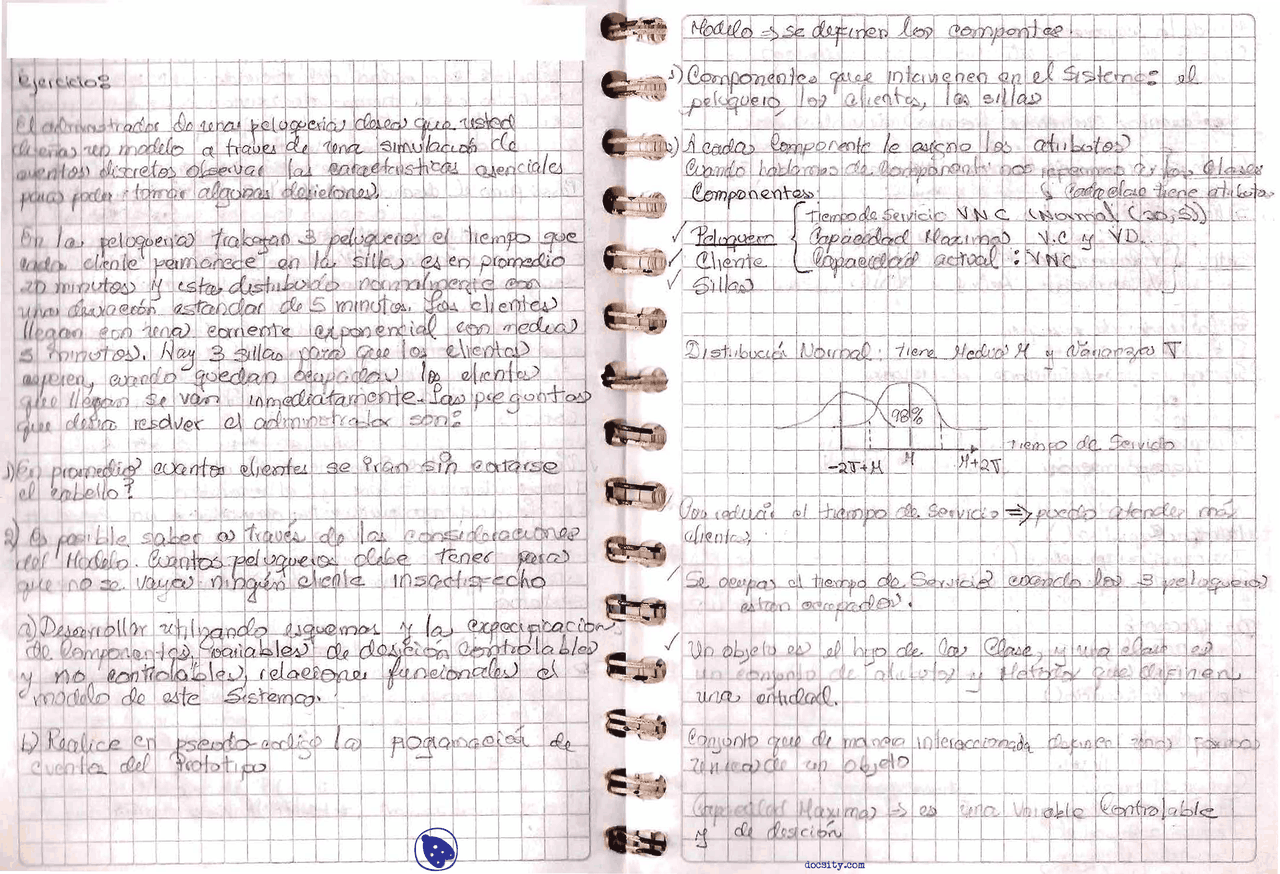 Ejercicio:
El administrador de una peluqueria desea que usted
diseña un modelo a traves de una simulación de
eventos discretos observar las caracteristicas esenciales
para poder tomar algunas desiciones.
En la peluqueria trabajan 3 peluqueros el tiempo que
cada cliente permanece en la silla es en promedio
20 minutos y esta distribuido normalmente con
una desviación estandar de 5 minutos. Los clientes
llegan con una corriente exponencial con media
5 minutos. Hay 3 sillas para que los clientes
esperen, cuando quedan ocupadas los clientes
que llegan se van inmediatamente. Las preguntas
que desea resolver el administrador son:
1) En promedio cuantos clientes se iran sin cortarse
el cabello?
2) Es posible saber a través de las consideraciones
del Modelo. Cuantos peluqueros debe tener para
que no se vaya ningún cliente insactisfecho
a) Desarrollar utilizando esquemas y la expecificacion
de componentes, variables de desición controlables
y no controlables, relaciones funcionales el
modelo de este Sistema.
b) Realice en pseudo-codigo la programación de
eventos del Prototipo
Modelo => se definen los compontes.
1) Componentes que intervienen en el Sistema: el
peluquero, los clientes, las sillas
2) A cada Componente le asigno los atributos
Cuando hablamos de Componente nos a las Clases
Cada clase tiene atributo
Componentes
Tiempo de Servicio VNC (Normal (20,5))
✓ Peluquero { Capacidad Maxima V.C y VD.
✓ Cliente Capacidad actual: VNC
✓ Sillas
Distribución Normal: tiene Media M y Varianza T
98%
Tiempo de Servicio
-2T+M M M+2T
reducir el tiempo de Servicio => puedo atender más
clientes,
✓ Se ocupa el tiempo de Servicio cuando los 3 peluqueros
estan ocupados.
✓ Un objeto es el hijo de la Clase, y una clase es
un conjunto de atributos y Metodos que definen
una entidad.
Conjunto que de manera interaccionada definen una
unica de un objeto
Capacidad Maxima => es una Variable Controlable
y de desición
docsity.com